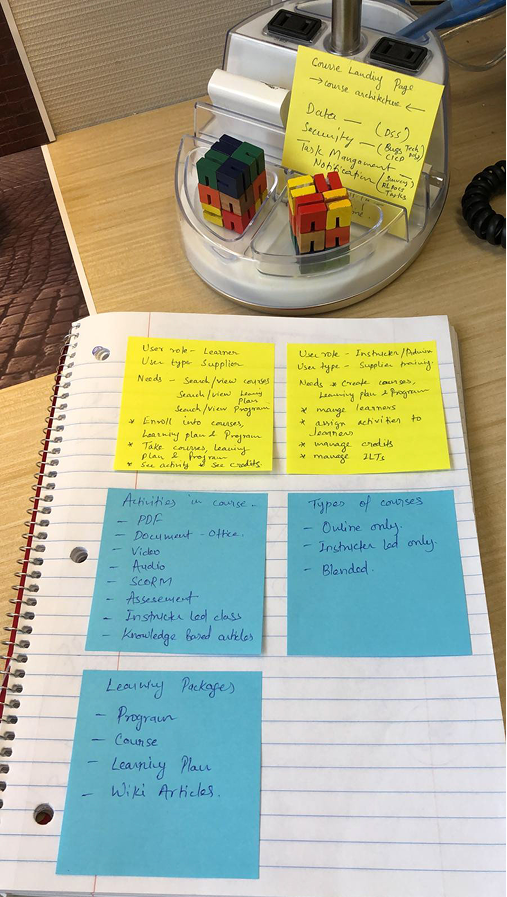 Course Landing Page
→ course architecture ←
Data — (DSS)
Security — (Bugs Tech)
CICP
Task Mangoment —
Notification (
Tasks
User role - Learner
User type Supplier
Needs - Search/view courses
Search/view Learning
Plan
Search/View Program
* Enroll into courses,
Learning plan & Program
* Take courses, learning
plan & Program
* See activity & see credits.
User role - Instructor/Admin
User type - Supplier training.
Needs * Create courses,
Learning plan & Program
* mange learners
* assign activities to
learners
* manage credits
* manage ILTs
Activities in course -
- PDF
- Document - Office.
- Video
- Audio
- SCORM
- Assesement
- Instructor Led class
- Knowledge based articles
Types of courses
- Online only.
- Instructor led only.
- Blended.
Learning Packages
- Program
- Course
- Learning Plan
- Wiki Articles.